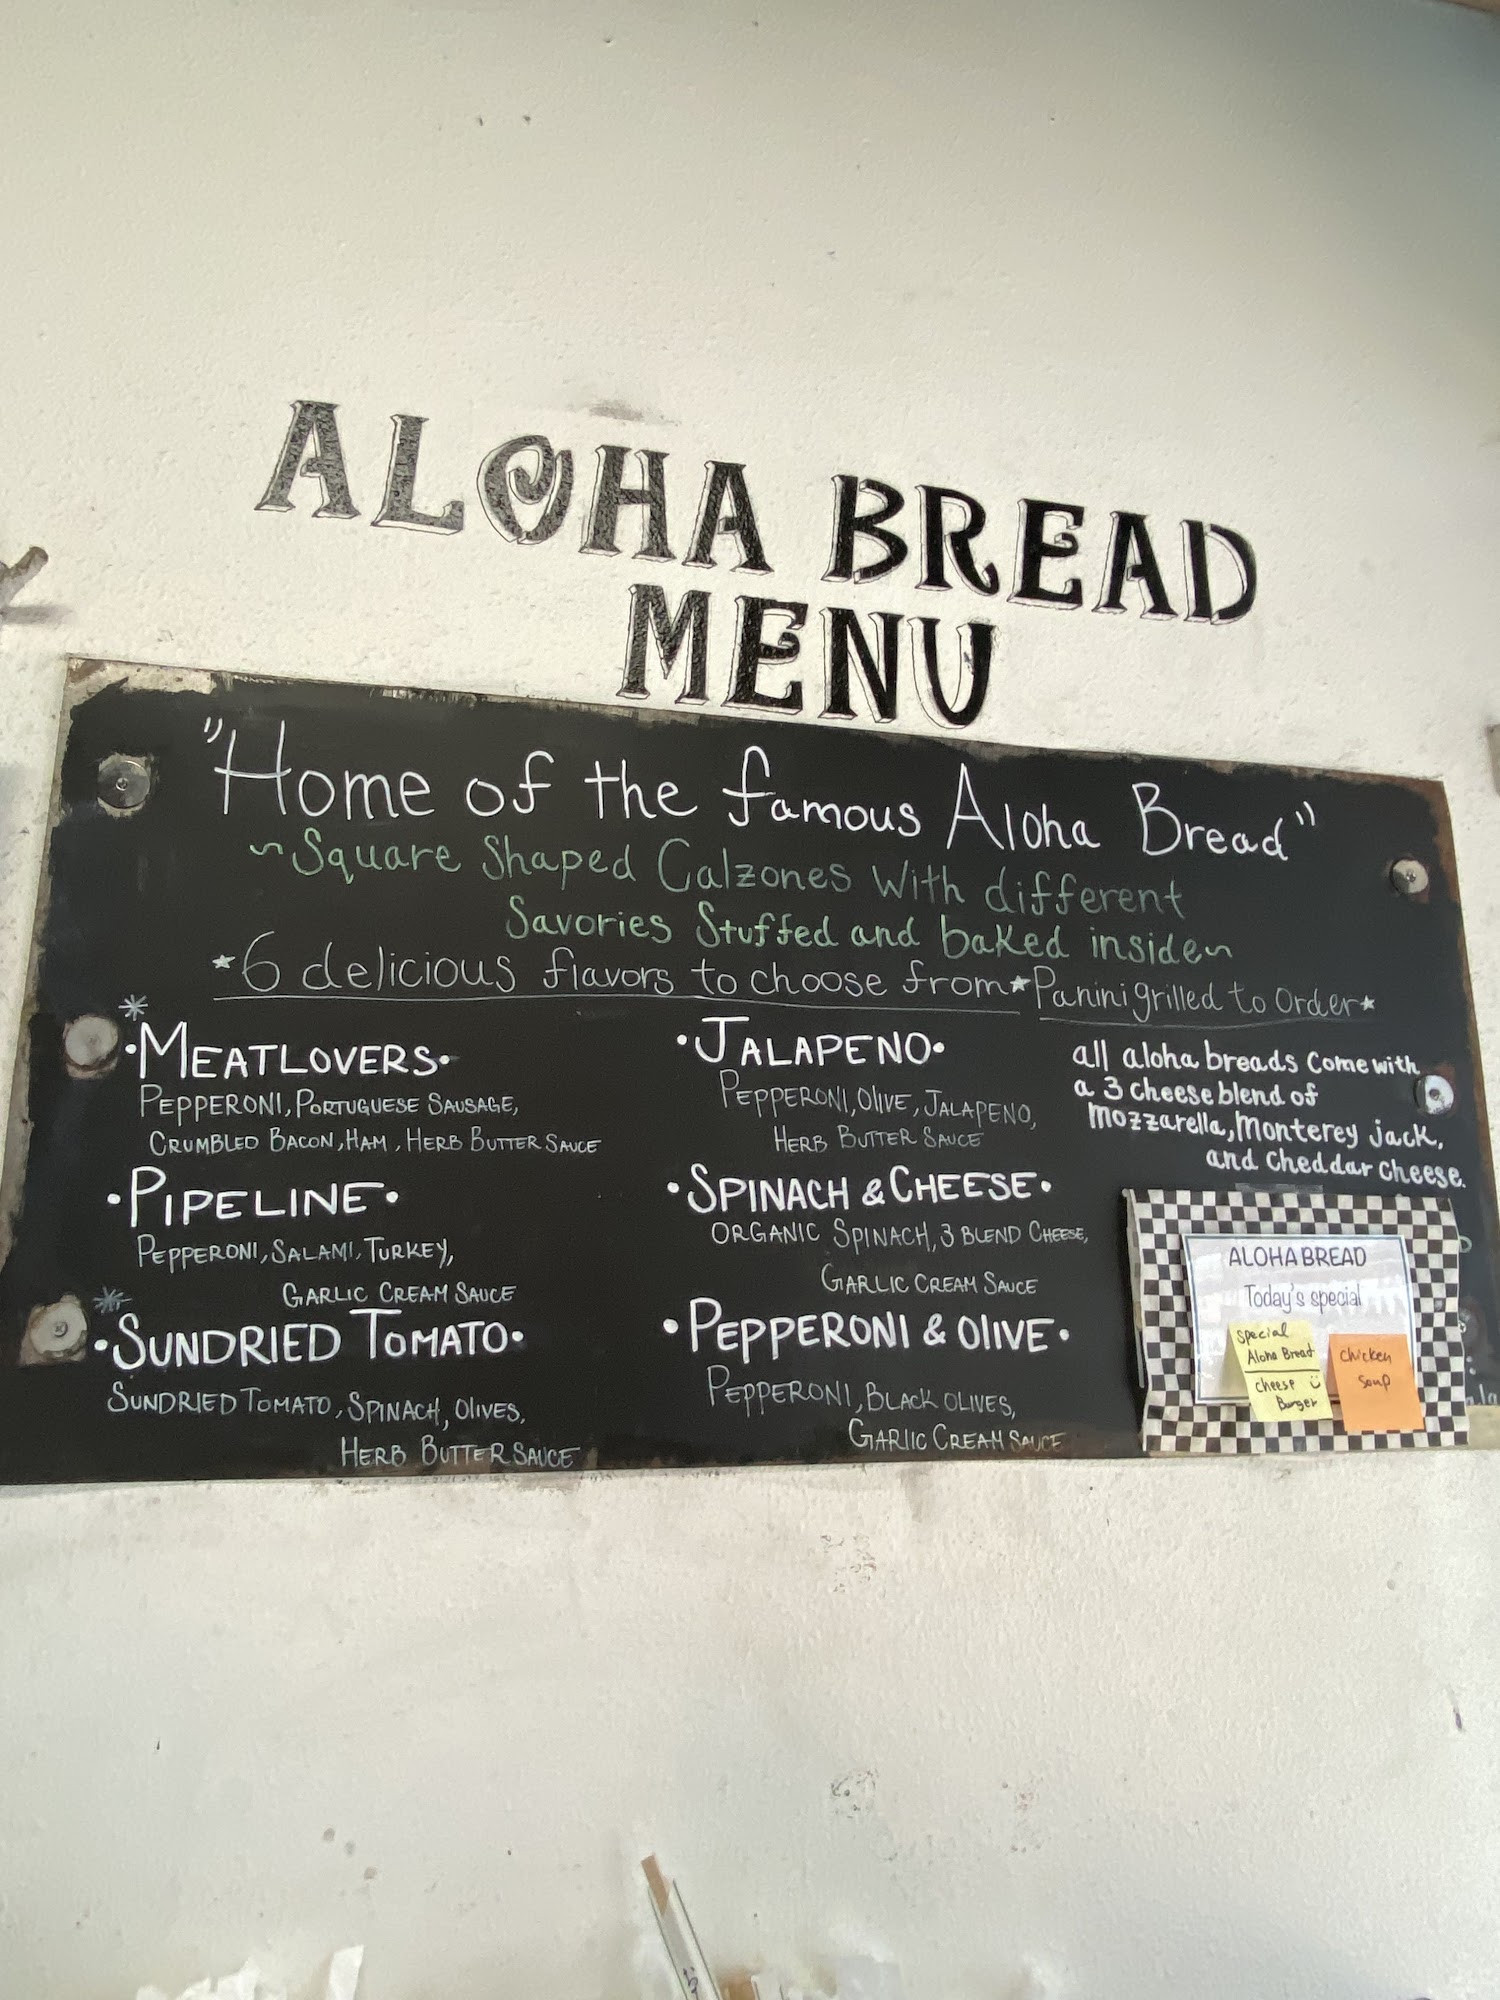 ALOHA BREAD
MENU
"Home of the famous Aloha Bread"
~Square Shaped Calzones With different
Savories Stuffed and baked inside~
*6 delicious flavors to choose from*Panini grilled to order*
*
•MEATLOVERS•
PEPPERONI, PORTUGUESE SAUSAGE,
CRUMBLED BACON, HAM, HERB BUTTER SAUCE
•PIPELINE•
PEPPERONI, SALAMI, TURKEY,
GARLIC CREAM SAUCE
*
•SUNDRIED TOMATO•
SUNDRIED TOMATO, SPINACH, OlIVES,
HERB BUTTER SAUCE
•JALAPENO•
PEPPERONI, OlIVE, JALAPENO,
HERB BUTTER SAUCE
•SPINACH & CHEESE•
ORGANIC SPINACH, 3 BLEND CHEESE,
GARLIC CREAM SAUCE
•PEPPERONI & OlIVE•
PEPPERONI, BLACK OLIVES,
GARlIC CREAM SAUCE
all aloha breads come with
a 3 cheese blend of
mozzarella, monterey jack,
and cheddar cheese.
ALOHA BREAD
Today's special
special
Aloha Bread
cheese
Burger
chicken
soup